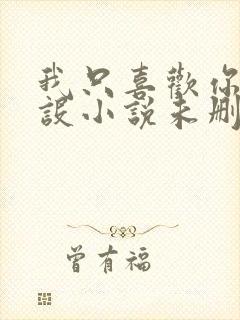 我只喜歡你
設小說未刪
曾有福